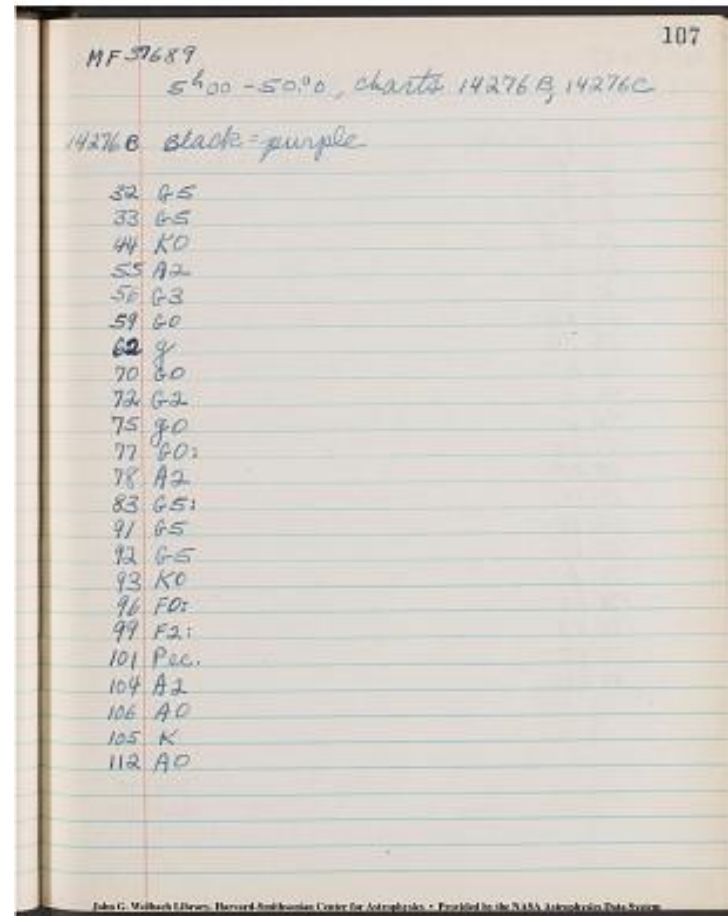 107
MF 37689
5h00 -50.°0, charts 14276B, 14276C
14276B Black = purple
32 G5
33 G5
44 K0
55 A2
56 G3
59 G0
62 g
70 G0
72 G2
75 g0
77 G0:
78 A2
83 G5:
91 G5
92 G5
93 K0
96 F0:
99 F2:
101 Pec.
104 A2
106 A0
105 K
112 A0
John G. Wolbach Library, Harvard-Smithsonian Center for Astrophysics • Provided by the NASA Astrophysics Data System